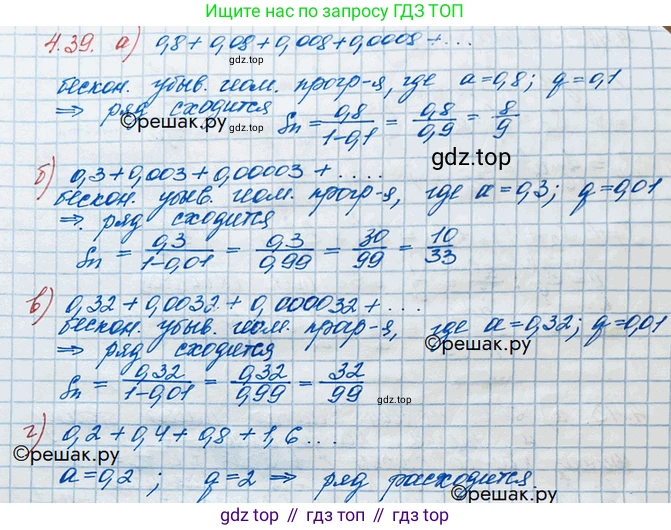 Ищите нас по запросу ГДЗ ТОП
4.39. а) 0,8 + 0,08 + 0,008 + 0,0008 + ...
бескон. убыв. геом. прогр-я, где a = 0,8; q = 0,1
⇒ ряд сходится Sn = 0,8/(1-0,1) = 0,8/0,9 = 8/9
©решак.ру gdz.top ©решак.ру
gdz.top
б) 0,3 + 0,003 + 0,00003 + ....
бескон. убыв. геом. прогр-я, где a = 0,3; q = 0,01
⇒ ряд сходится
Sn = 0,3/(1-0,01) = 0,3/0,99 = 30/99 = 10/33
в) 0,32 + 0,0032 + 0,000032 + ...
бескон. убыв. геом. прогр-я, где a = 0,32; q = 0,01
©решак.ру
⇒ ряд сходится
Sn = 0,32/(1-0,01) = 0,32/0,99 = 32/99
gdz.top
г) 0,2 + 0,4 + 0,8 + 1,6 ...
©решак.ру
a = 0,2 ; q = 2 ⇒ ряд расходится.
©решак.ру
gdz top // гдз топ // gdz.top